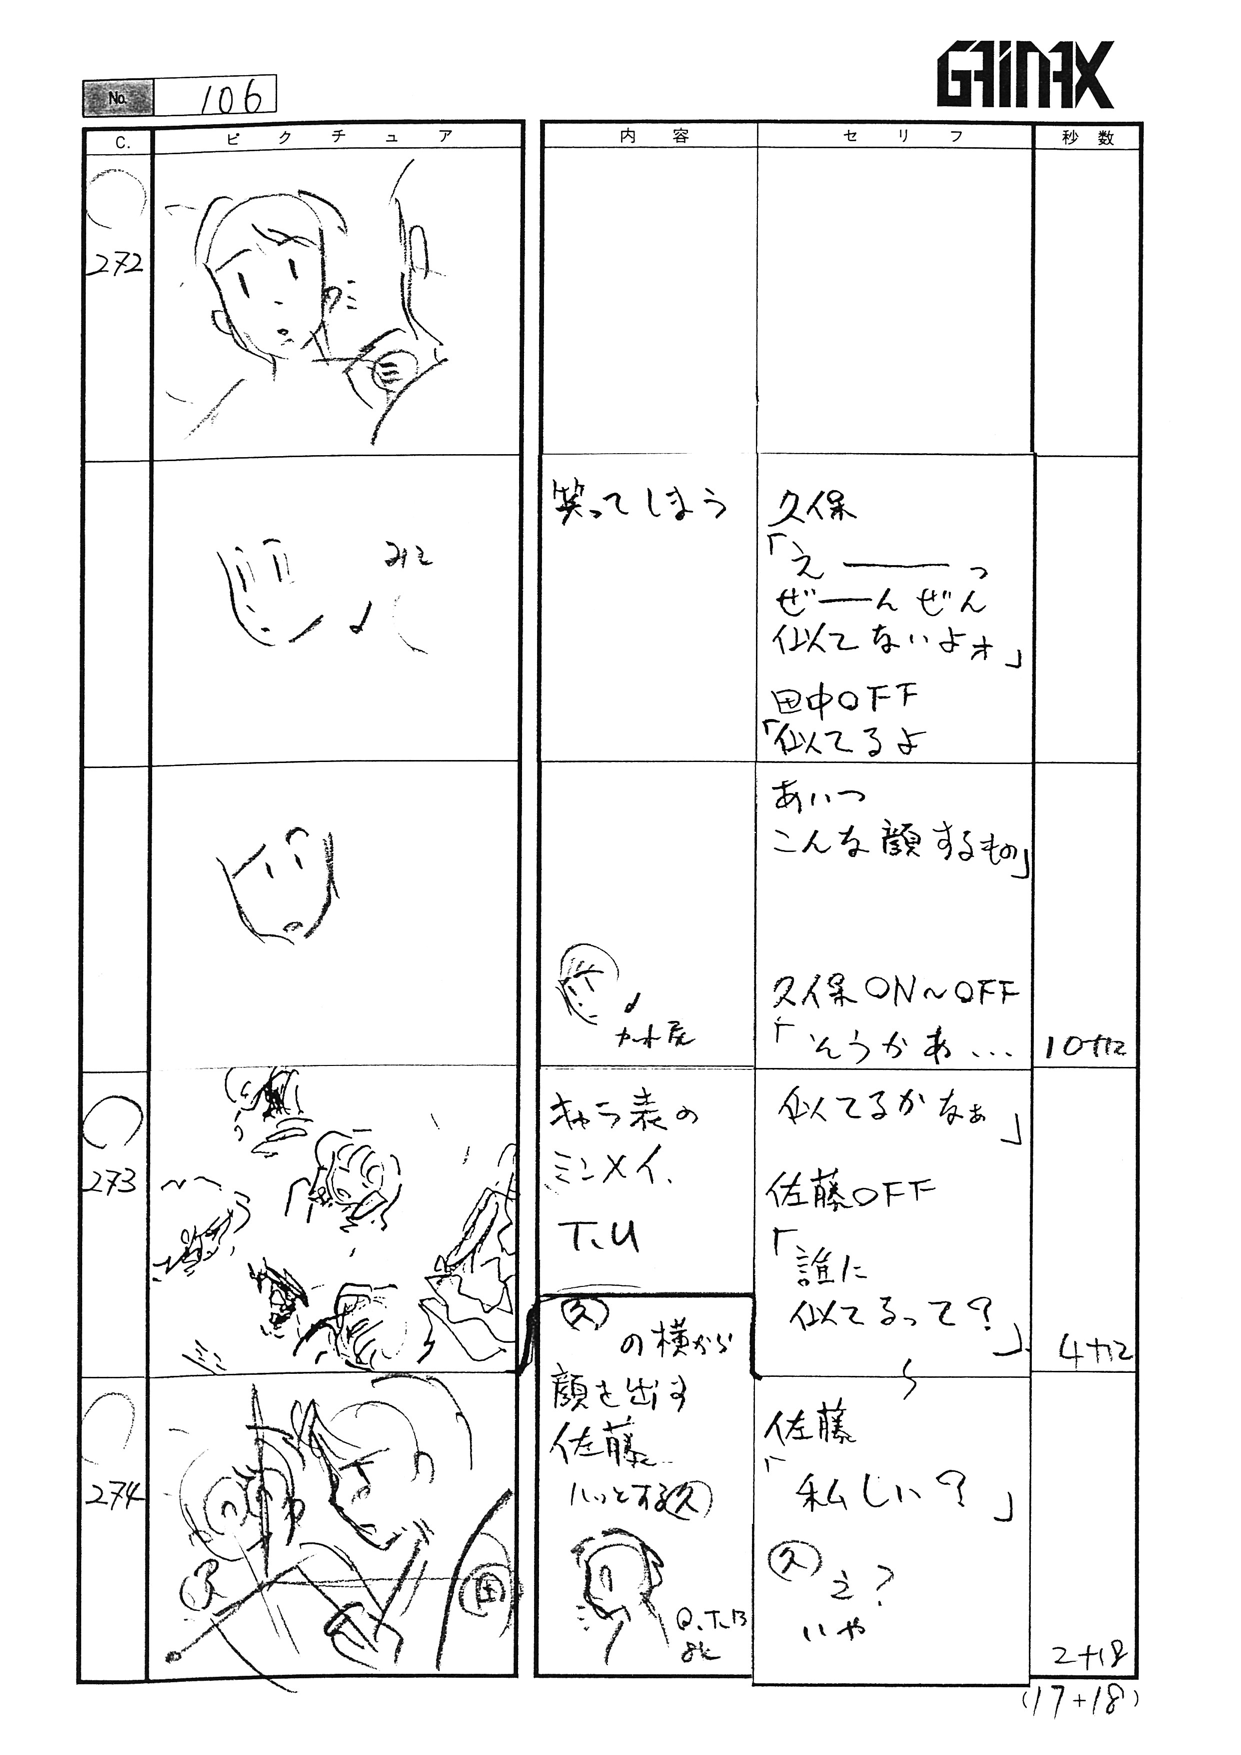 GAINAX
No. 106
C.
ピクチュア
内容
セリフ
秒数
272
笑ってしまう
久保
「え――っ
ぜーんぜん
似てないよォ」
田中OFF
「似てるよ
あいつ
こんな顔するもの」
久保ON〜OFF
「そうかぁ...
10+12
273
キャラ表の
ミンメイ.
T.U
似てるかなぁ」
佐藤OFF
「誰に
似てるって?」
4+12
274
久
の横から
顔を出す
佐藤
ハッとする久
Q.T.B
田
佐藤
「私しい?」
久
え?
いや
2+18
(17+18)